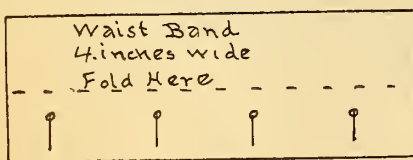 Waist Band
4.inches wide
Fold Here